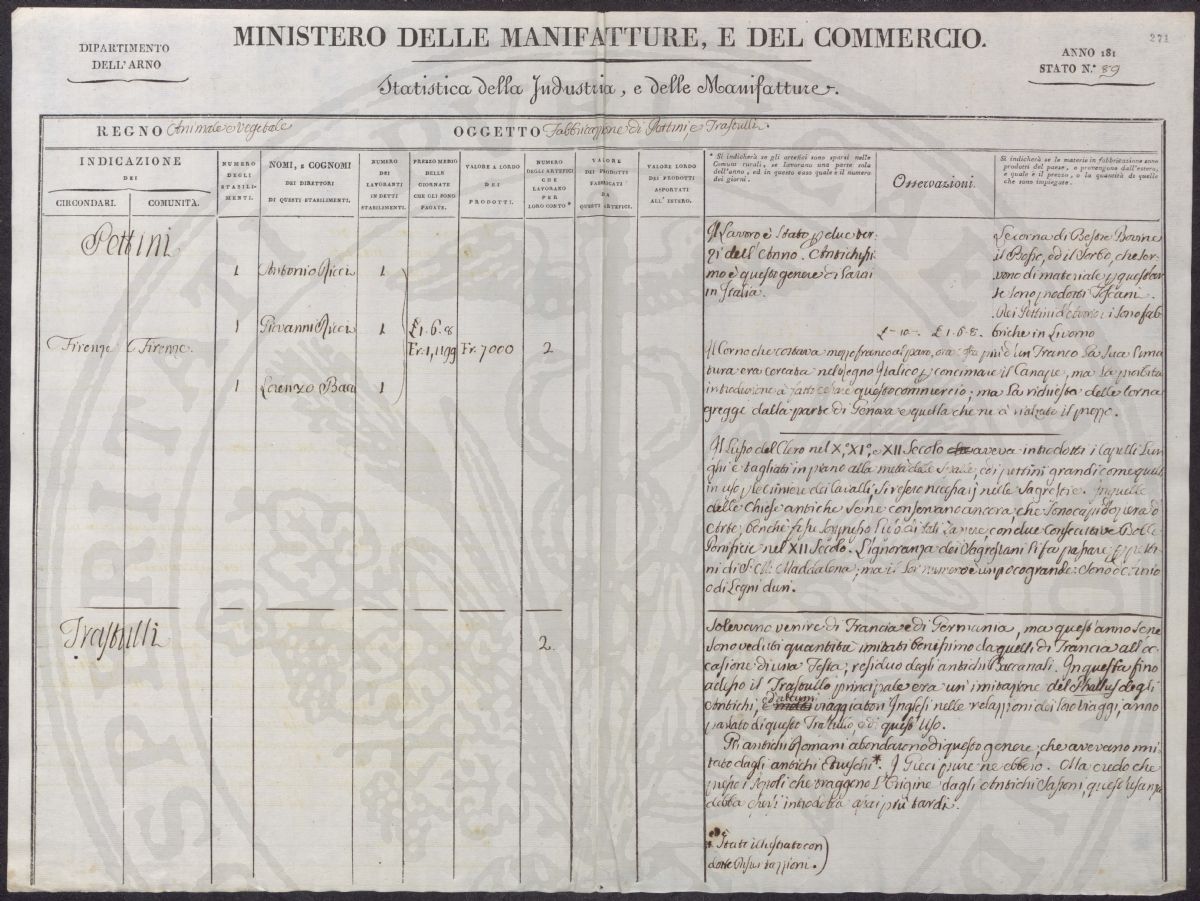 MINISTERO DELLE MANIFATTURE, E DEL COMMERCIO.
DIPARTIMENTO
DELL'ARNO
Statistica della Industria, e delle Manifatture.
ANNO 181
STATO N.° 89
271
REGNO Animale e Vegetale
OGGETTO Fabbricazione di Pettini, e Trastulli.
INDICAZIONE
DEI
CIRCONDARI.
COMUNITÀ.
NUMERO
DEGLI
STABILI-
MENTI.
NOMI, E COGNOMI
DEI DIRETTORI
DI QUESTI STABILIMENTI.
NUMERO
DEI
LAVORANTI
IN DETTI
STABILIMENTI.
PREZZO MEDIO
DELLE
GIORNATE
CHE GLI SONO
PAGATE.
VALORE A LORDO
DEI
PRODOTTI.
NUMERO
DEGLI ARTEFICI
CHE
LAVORANO
PER
LORO CONTO*
VALORE
DEI PRODOTTI
FABBRICATI
DA
QUESTI ARTEFICI.
VALORE LORDO
DEI PRODOTTI
ASPORTATI
ALL'ESTERO.
* Si indicherà se gli artefici sono sparsi nelle
Comuni rurali, se lavorano una parte sola
dell'anno, ed in questo caso quale è il numero
dei giorni.
Osservazioni.
Si indicherà se le materie in fabbricazione sono
prodotti del paese, o provengono dall'estero,
e quale è il prezzo, o la quantità di quelle
che sono impiegate.
Pettini
1 Antonio Ricci 1
1 Giovanni Ricci 1 £1.6.8
Firenze Firenze. Fr. 1,1199 Fr. 7000 2
1 Lorenzo Baci 1
Il Lavoro è stato p due ter-
zi dell'Anno. Antichissi-
mo è questo genere di Lavori
in Italia.
Le corna di Bestie Bovine
il Bossо, ed il Sorbo, che ser-
vono di materiale p quest'ar-
te sono prodotti Toscani.
Dei Pettini d'avorio vi sono fab-
briche in Livorno
£ -10-. £ 1.6.8.
Il Corno che costava mezzo franco al paro, ora costa più d'un Franco La sua lima
tura era cercata nel Regno Italico p concimare il Canape, ma la proibita
introduzione à fatto cessare questo commercio; ma la richiesta delle Corna
gregge dalla parte di Genova è quella che ne à rialzato il prezzo.
Il Lusso del Clero nel X.° XI.°, e XII Secolo aveva introdotti i Capelli Lun
ghi e tagliati in piano alla metà delle spalle; coi pettini grandi come quelli
in uso p le criniere dei Cavalli, si resero necessarj nelle Sagrestie. In quelle
delle Chiese antiche se ne conservano ancora, che sono capi d'opera d'
Arte, benchè fosse soppresso l'uso di tali Zazzere, con due consecutive Bolle
Pontificie nel XII Secolo. L'ignoranza dei Sagrestani li fa passare p petti-
ni di S.ª M.ª Maddalena; ma il lor numero è un poco grande: Sono d'avorio
o di Legni duri.
Trastulli
2.
Solevano venire di Francia e di Germania, ma quest'anno se ne
sono veduti quantità imitati benissimo da quelli di Francia all'oc-
casione di una Festa; residuo dagli antichi Baccanali. In questa fino
adesso il Trastullo principale era un'imitazione del Phallus degli
Antichi, e d'alcuni viaggiatori Inglesi nelle relazioni dei loro viaggi, anno
parlato di questo Trastullo, e di quest'Uso.
Gli antichi Romani abondarono di questo genere, che avevano imi
tato dagli antichi Etruschi*. I Greci pure ne ebbero. Ma credo che
presso i Popoli che traggono L'Origine dagli Antichi Sassoni, quest'usanza
debba essersi introdotta assai più tardi.
Stati illustrato con
dotte Dissertazioni.